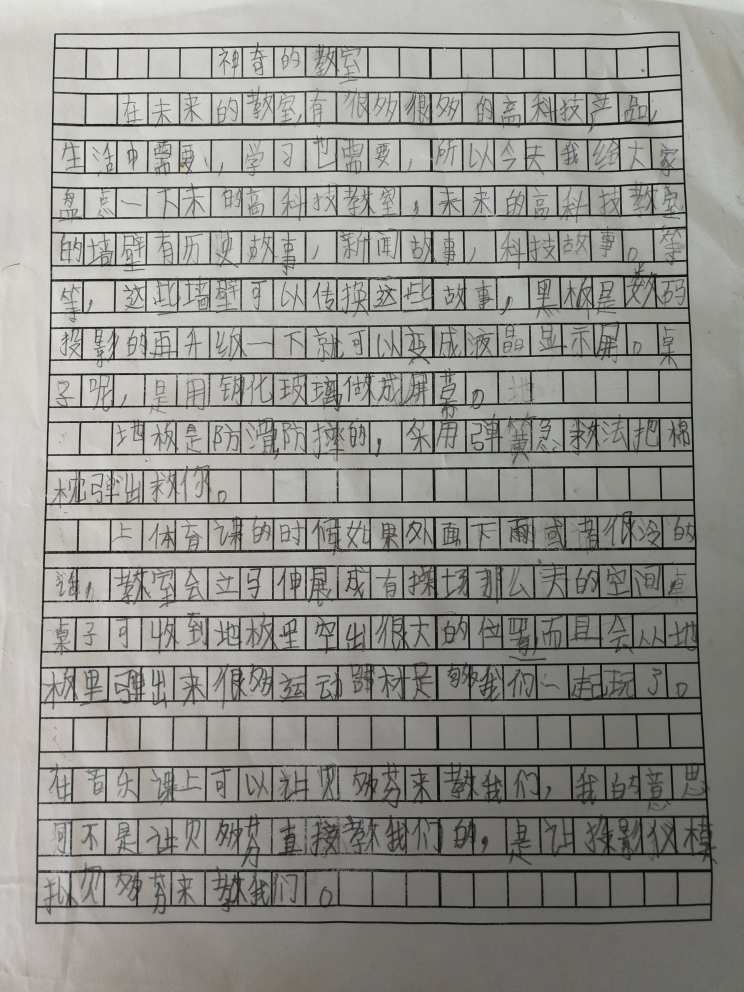 神奇的教室
在未来的教室,有很多很多的高科技产品,
生活中需要,学习也需要,所以今天我给大家
盘点一下未的高科技教室,未来的高科技教室
的墙壁有历史故事,新闻故事,科技故事。等
等,这些墙壁可以传换这些故事,黑板是数码
投影的再升级一下就可以变成液晶显示屏。桌
子呢,是用钢化玻璃做成屏幕。地
地板是防滑,防摔的,采用弹簧急救法把棉
枕弹出救你。
上体育课的时候如果外面下雨或者很冷的
话,教室会立马伸展成有操场那么大的空间桌
桌子可收到地板里空出很大的位置,而且会从地
板里弹出来很多运动器材足够我们一起玩了。
在音乐课上可以让贝多芬来教我们,我的意思
可不是让贝多芬直接教我们的,是让投影仪模
拟贝多芬来教我们。